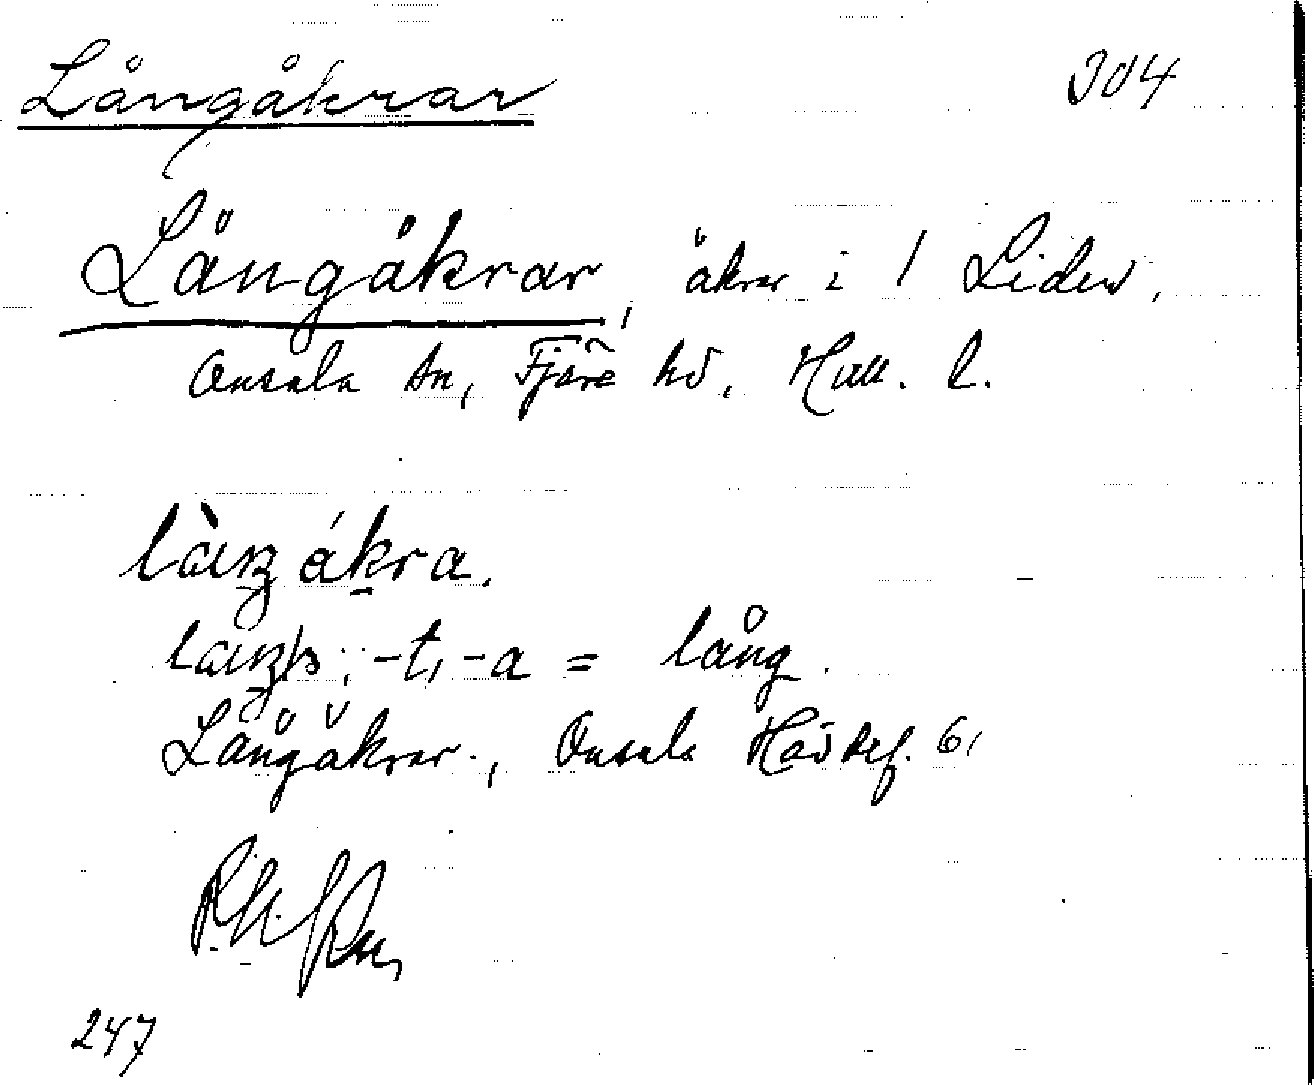 Långåkrar 304
Långåkrar, åkrar i 1 Liden,
Onsala sn, Fjäre hd, Hall. l.
låŋåkra.
-t, -a = lång.
Långåkrar, Onsala Hdskf. 6,
247